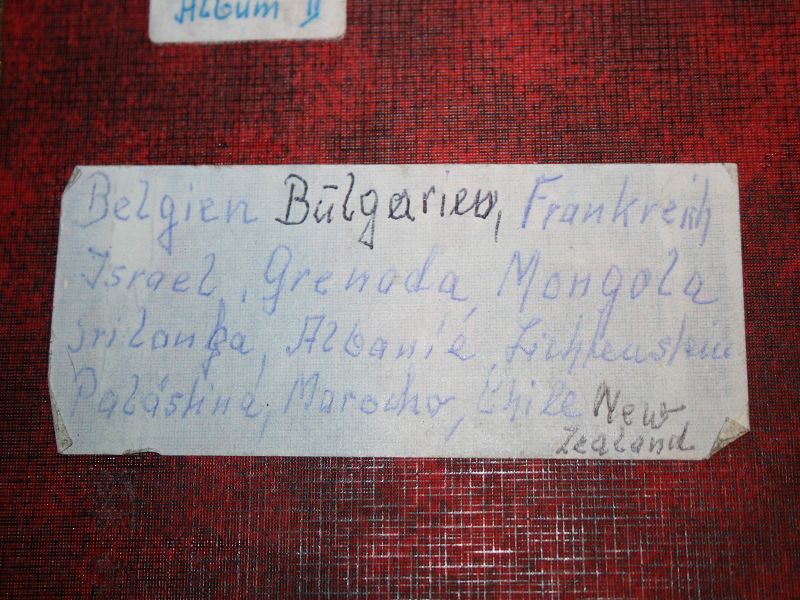 Album II
Belgien Būlgarien, Frankreich
Israel, Grenada, Mongola
Srilanka, Albanie, Lichtenstein
Palästina, Marocko, Chile New
Zealand